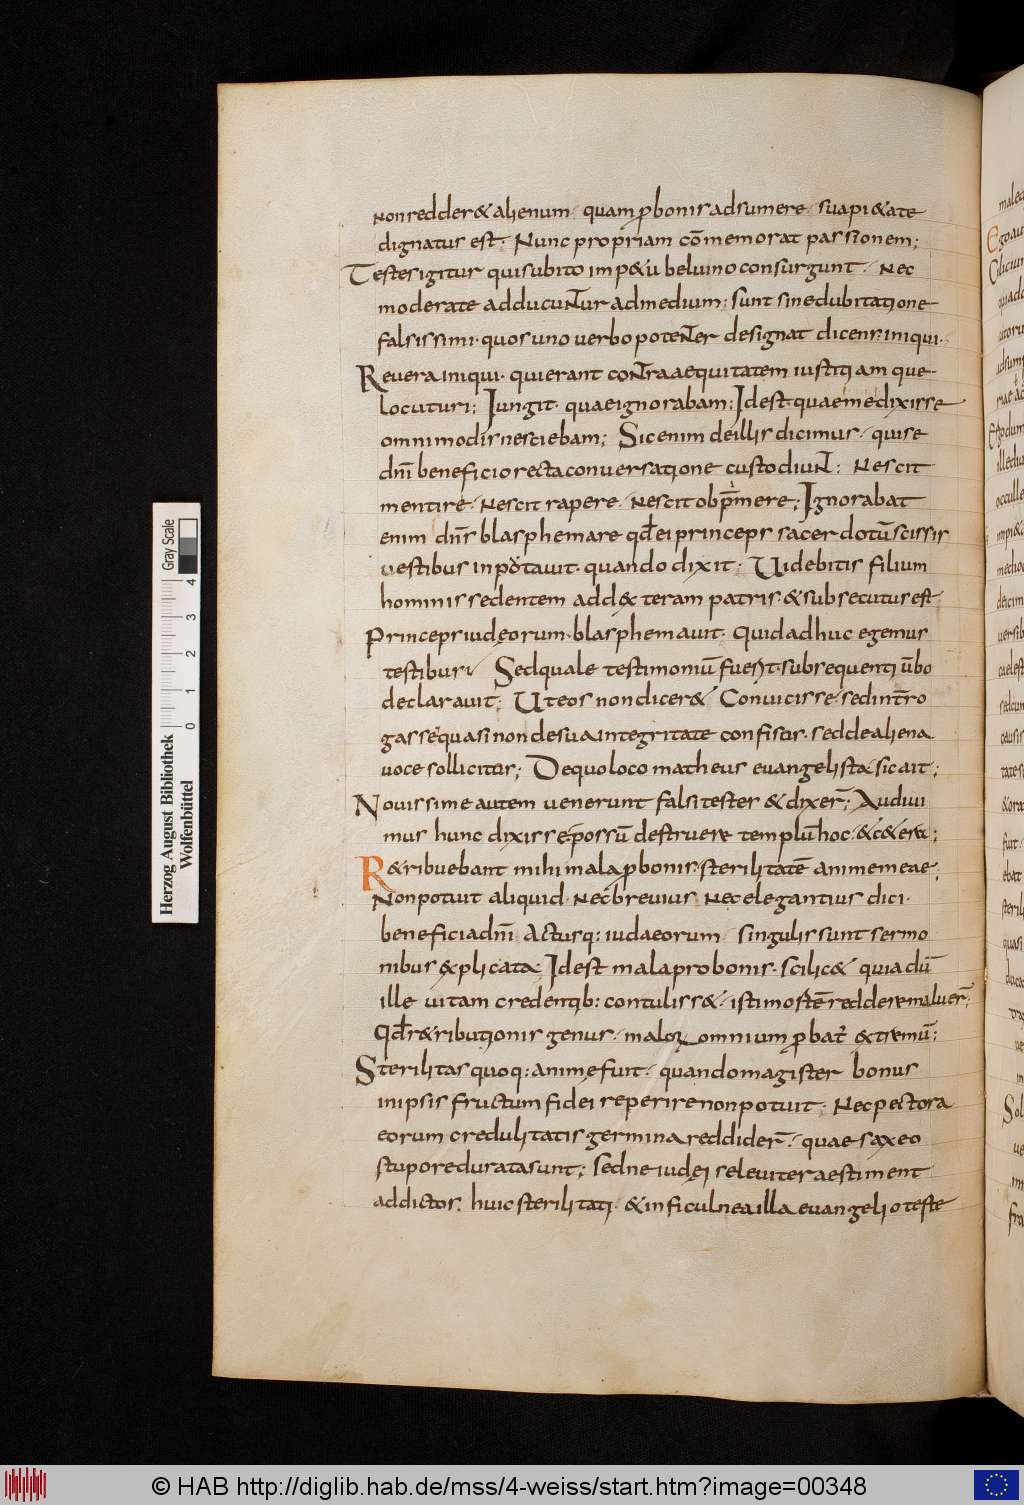 Non redder& alienum· quam ꝓ bonis adsumere· sua pi&ate
dignatus est· Nunc propriam cōmemorat passionem;
Testes igitur qui subito imp&u beluino consurgunt· Nec
moderate adducuntur ad medium; sunt sine dubitatione
falsissimi· quos uno uerbo potenter designat dicens· iniqui·
Reuera iniqui· qui erant contra aequitatem iustitiam que
locuturi; Iungit· quae ignorabam; Idest· quae me dixisse
omnimodis nesciebam; Sic enim de illis dicimus· qui se
dn̄i beneficio recta conuersatione custodiunt; Nescit
mentire· Nescit rapere· Nescit obp̄mere; Ignorabat
enim dn̄s blasphemare qđ ei princeps sacerdotū scissis
uestibus inpotauit· quando dixit; Uidebitis filium
hominis sedentem ad dexteram patris· & subsecutus est
Princeps iudęorum· blasphemauit· Quid adhuc egemus
testibus· Sed quale testimoniū fuerit· subsequenti ūbo
declarauit; Ut eos non dicer& Conuicisse· sed intr̄ro
gasse quasi non de sua integritate confisus· sed de aliena
uoce sollicitus; De quo loco matheus euangelista sic ait;
Nouissime autem uenerunt falsi testes & dixer̄; Audiui
mus hunc dixisse· possū destruere templū hoc· &c&era;
R&ribuebant mihi mala ꝓ bonis· sterilitatē anime meae;
Non potuit aliquid· Nec breuius Nec elegantius dici·
beneficia dn̄i Actusq: iudaeorum· singulis sunt sermo
nibus explicata· Idest mala pro bonis· scilic& quia dū
ille uitam credentib: contuliss&· isti mortē reddere maluer̄;
Qđ r&ributionis genus· maloꝝ omnium ꝓbat̄ extremū;
Sterilitas quoq: animę fuit· quando magister bonus
in ipsis fructum fidei reperire non potuit; Nec pectora
eorum credulitatis germina reddider̄· quae saxeo
stupore durata sunt; sed ne iudęi se leuiter aestiment
addictos· huic sterilitati· & in ficulnea illa euangelio teste
Herzog August Bibliothek
Wolfenbüttel
0 1 2 3 4
Gray Scale
© HAB http://diglib.hab.de/mss/4-weiss/start.htm?image=00348